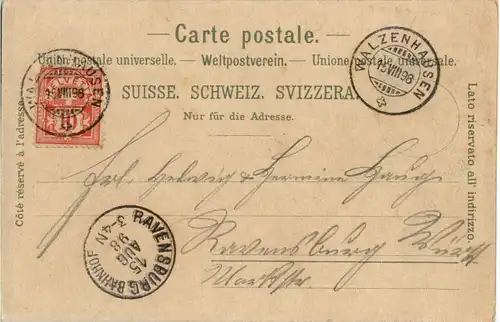 Carte postale.
Union postale universelle. — Weltpostverein. — Unione postale universale.
SUISSE. SCHWEIZ. SVIZZERA.
Nur für die Adresse.
Côté réservé à l'adresse.
Lato riservato all' indirizzo.
WALZENHAUSEN
15 VIII 98
HELVETIA
10
WALZENHAUSEN
15 VIII 98
Frl. Helwig & Hermine Haug
Ravensburg Württ
Marktstr.
RAVENSBURG BAHNHOF
15
AUG
98
3-4N